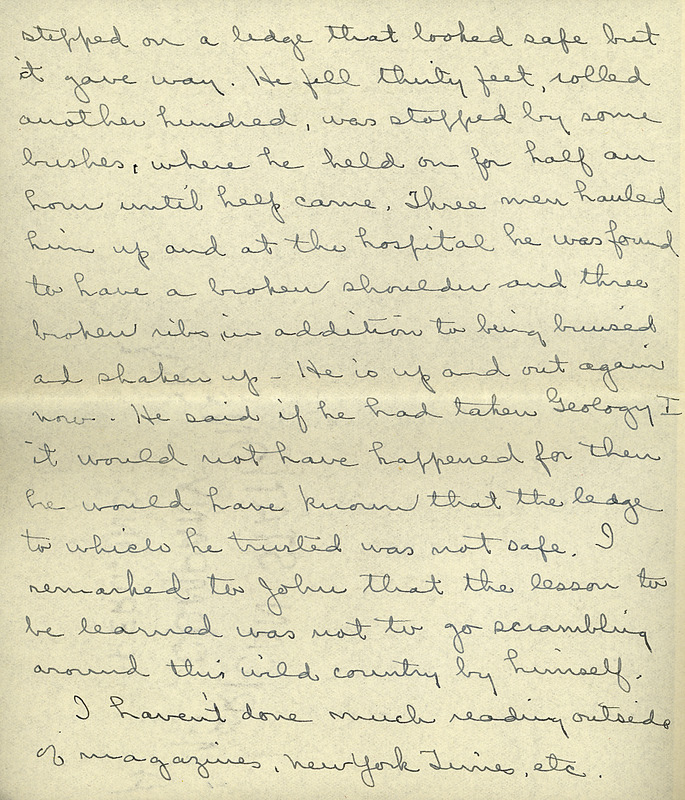 stepped on a ledge that looked safe but
it gave way. He fell thirty feet, rolled
another hundred, was stopped by some
bushes, where he held on for half an
hour until help came. Three men hauled
him up and at the hospital he was found
to have a broken shoulder and three
broken ribs, in addition to being bruised
ad shaken up - He is up and out again
now. He said if he had taken Geology I
it would not have happened for then
he would have known that the ledge
to which he trusted was not safe. I
remarked to John that the lesson to
be learned was not to go scrambling
around this wild country by himself.
I haven't done much reading outside
of magazines, New York Times, etc.